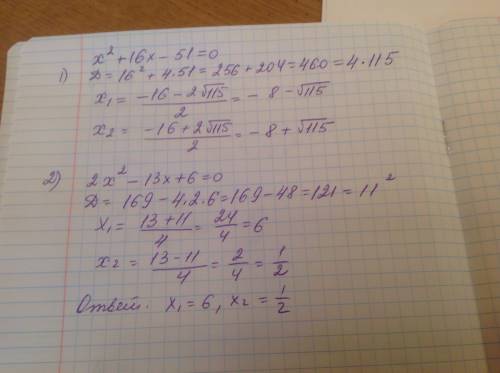 x² + 16x - 51 = 0
1) D = 16² + 4·51 = 256 + 204 = 460 = 4·115
x₁ = (-16 - 2√115)/2 = -8 - √115
x₂ = (-16 + 2√115)/2 = -8 + √115
2) 2x² - 13x + 6 = 0
D = 169 - 4·2·6 = 169 - 48 = 121 = 11²
x₁ = (13 + 11)/4 = 24/4 = 6
x₂ = (13 - 11)/4 = 2/4 = 1/2
Ответ. x₁ = 6, x₂ = 1/2